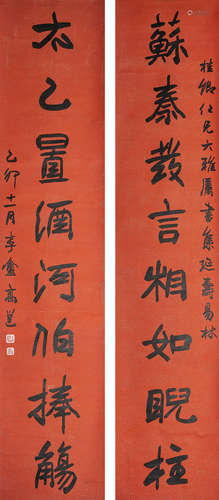 桂卿仁兄大雅屬書焦延壽易林
蘇秦發言相如睨柱
太乙置酒河伯捧觴
乙卯十一月李盦高邕